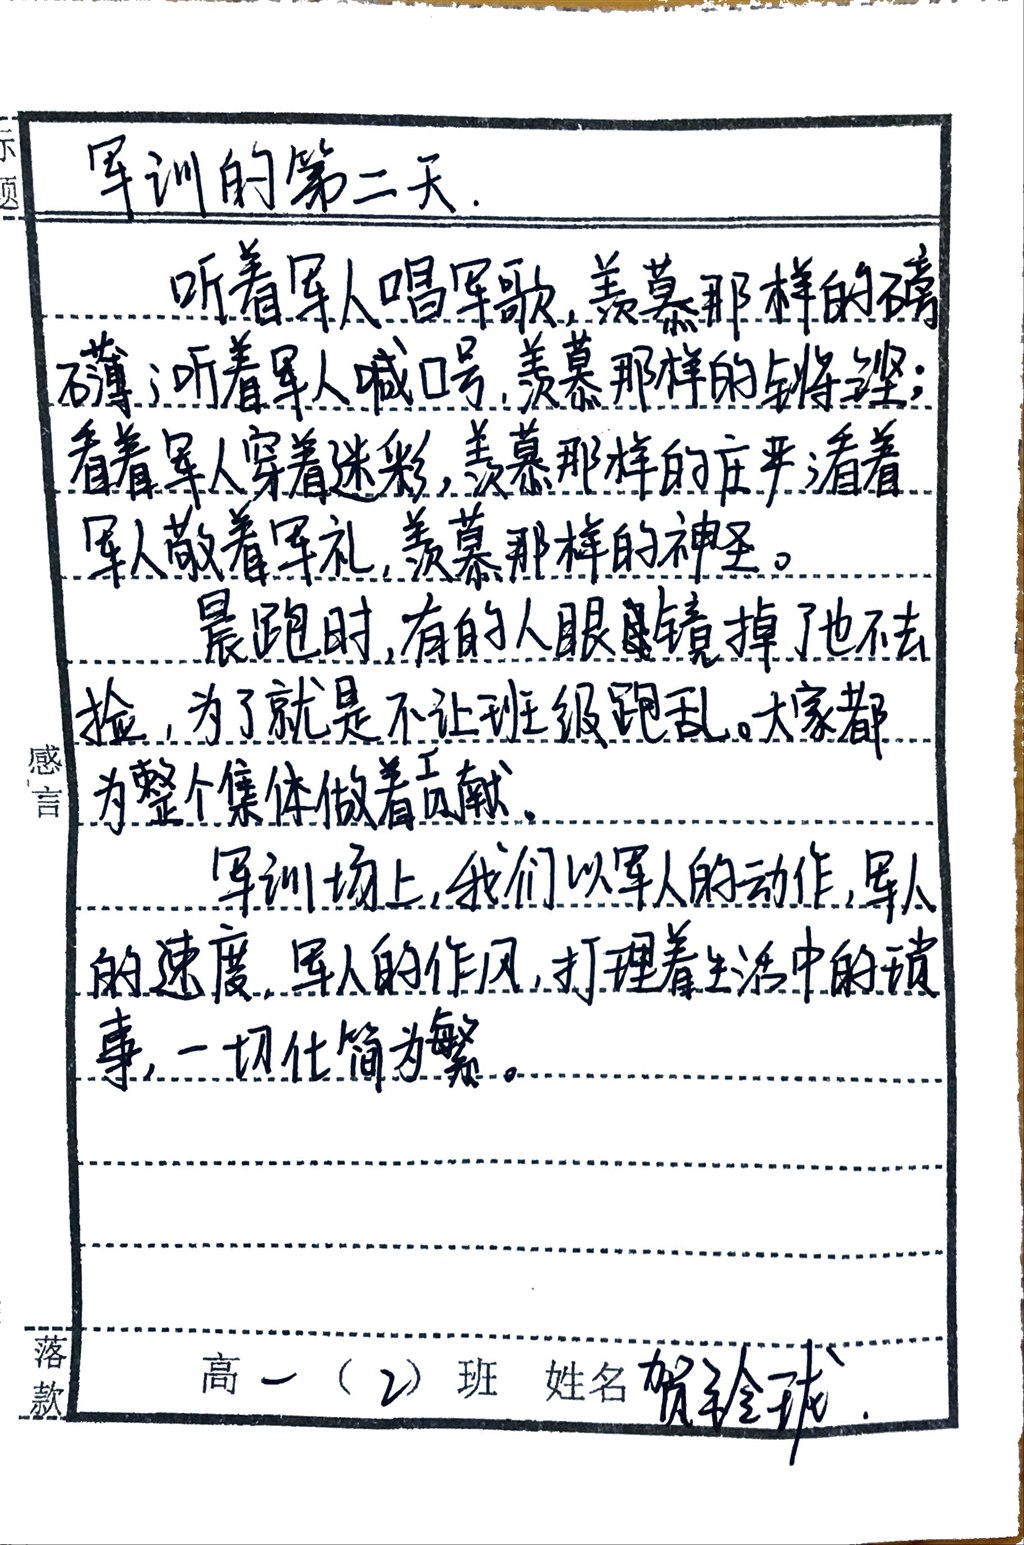 标题
军训的第二天.
听着军人唱军歌,羡慕那样的磅
礴;听着军人喊口号,羡慕那样的铿锵;
看着军人穿着迷彩,羡慕那样的庄严;看着
军人敬着军礼,羡慕那样的神圣。
晨跑时,有的人眼镜掉了也不去
捡,为了就是不让班级跑乱。大家都
为整个集体做着贡献。
军训场上,我们以军人的动作,军人
的速度,军人的作风,打理着生活中的琐
事,一切化简为繁。
感言
落款
高一(2)班 姓名贺玲珑.